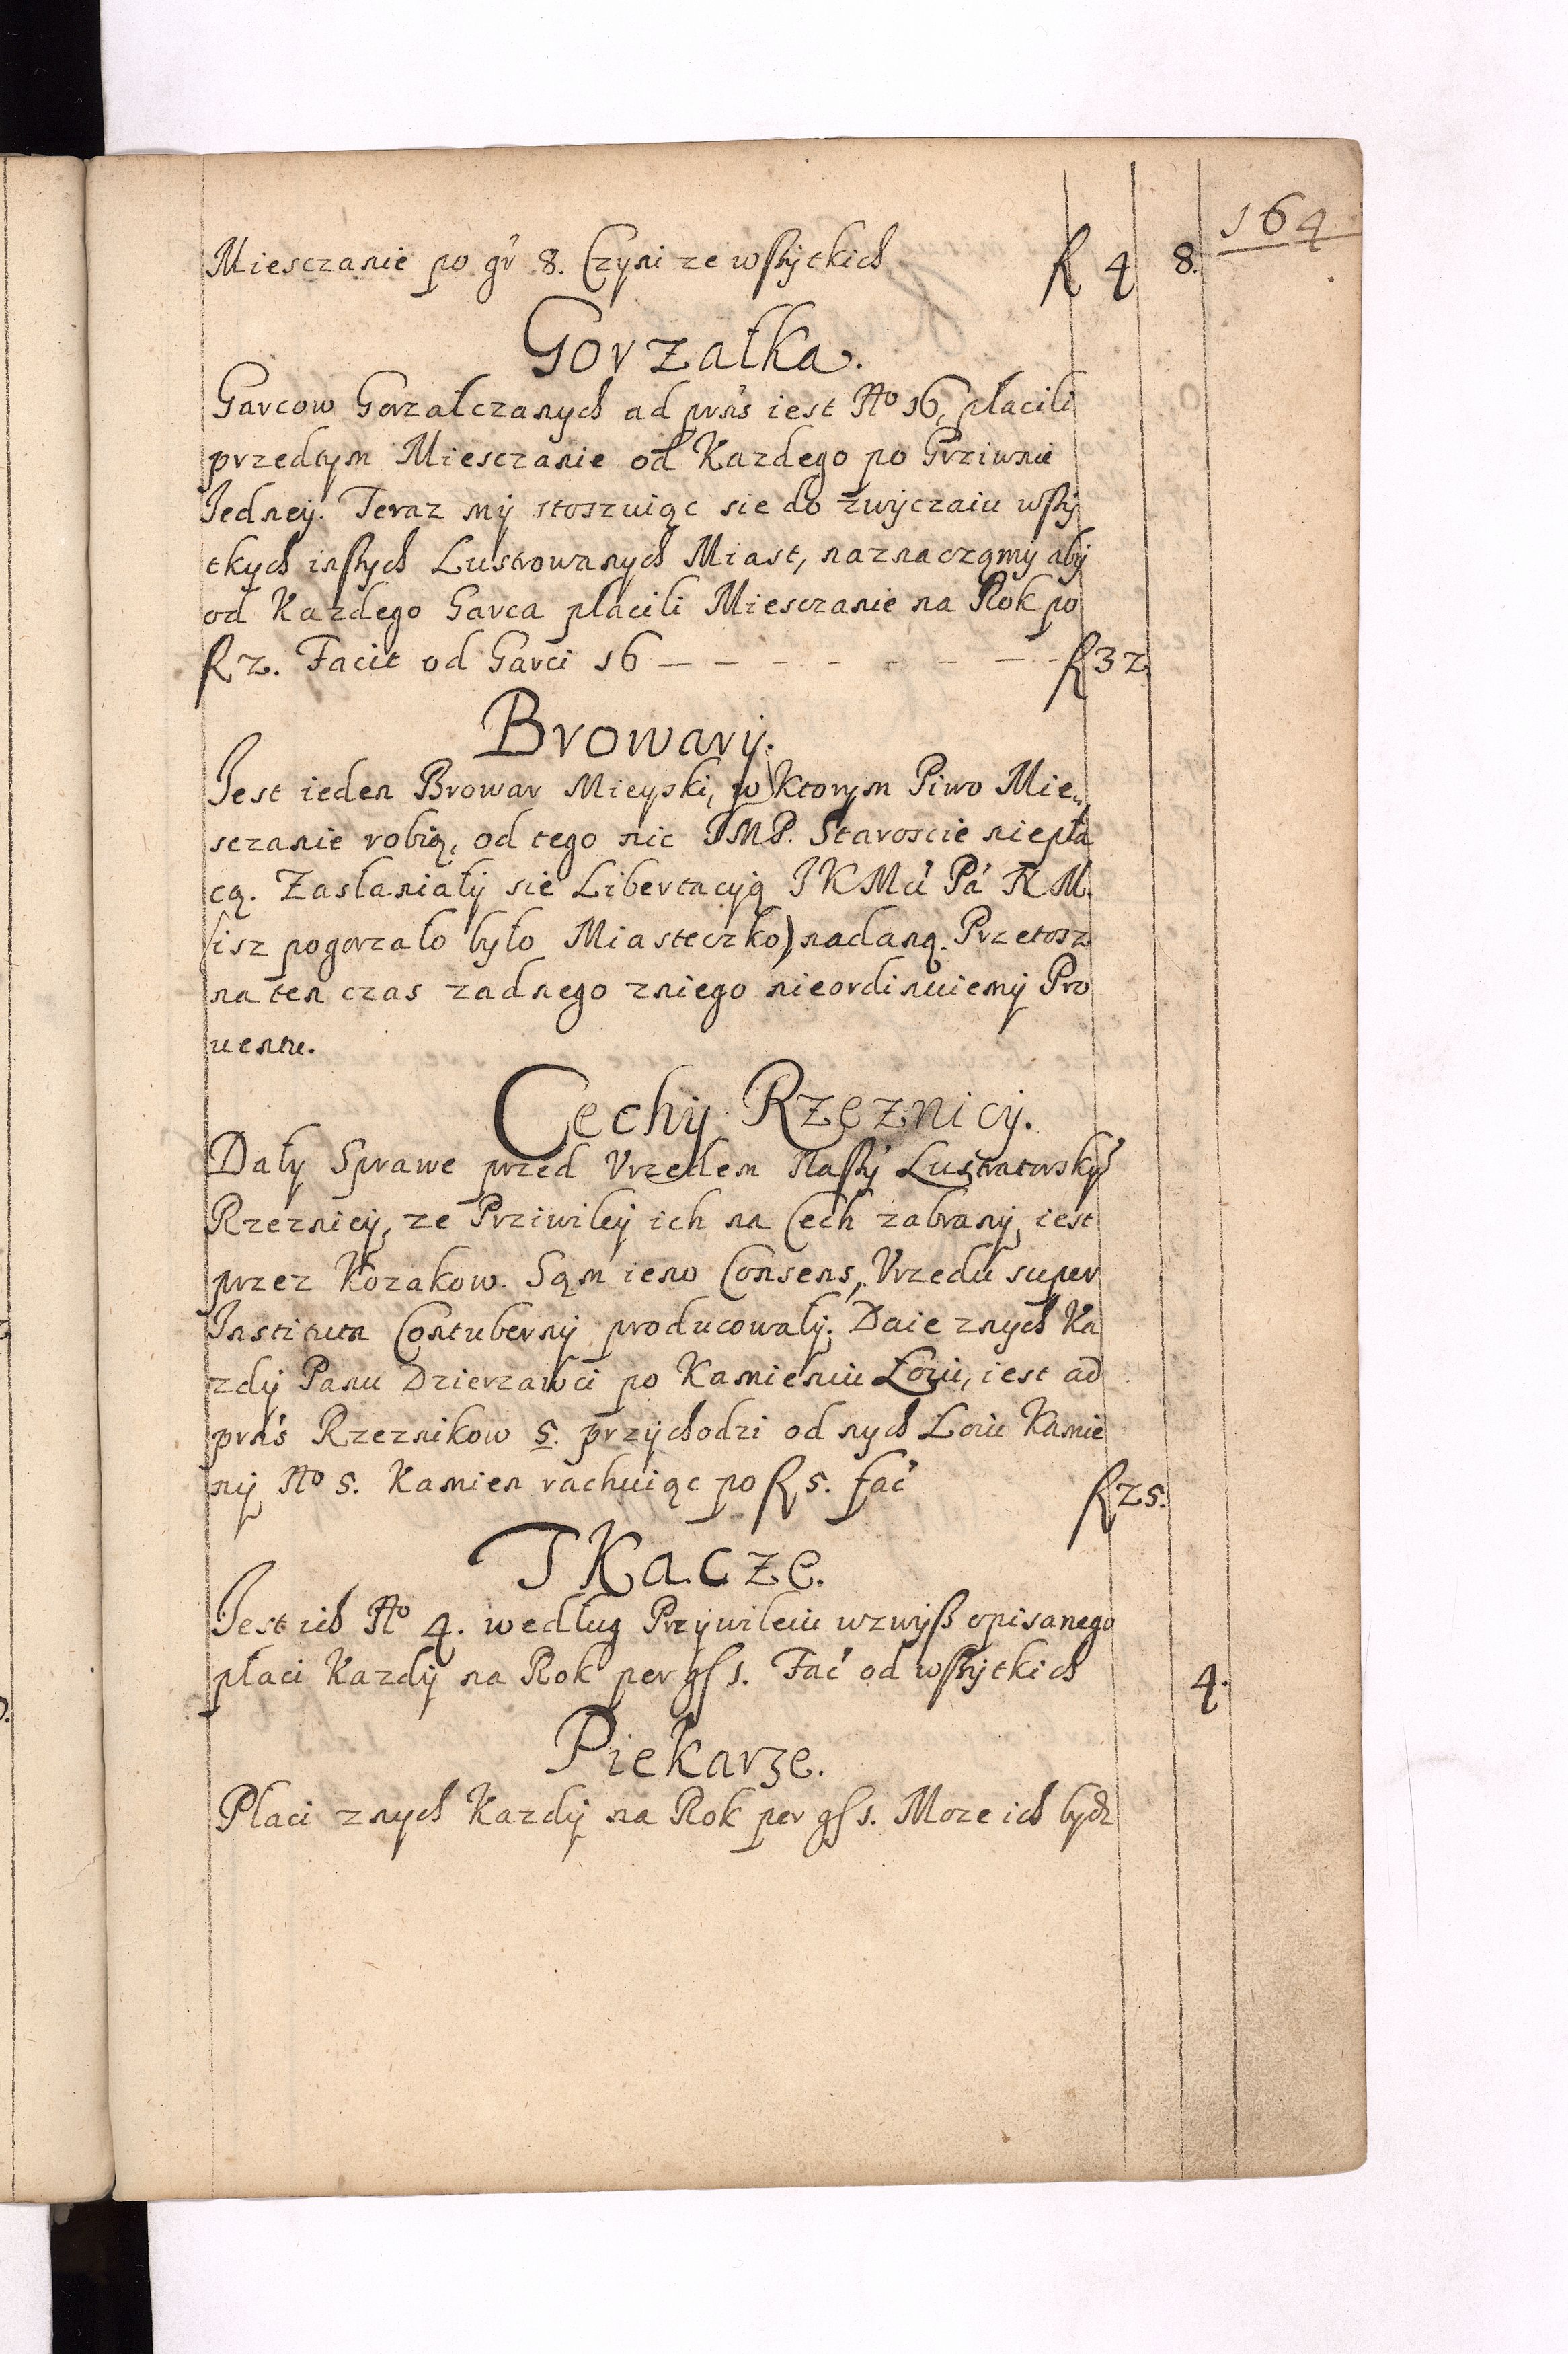 164
Miesczanie po gr 8. Czyni ze wszytkich f 4 8.
Gorzałka.
Garcow Gorzałczanych ad prns iest No 16, płacili
przedtym Miesczanie od Kazdego po Grziwnie
Jedney. Teraz my stoszuiąc sie do zwyczaiu wszy
tkych inszych Lustrowanych Miast, naznaczamy aby
od Kazdego Garca płacili Miesczanie na Rok po
f 2. Facit od Garci 16 – – – – – – – – f 32
Browary.
Jest ieden Browar Mieyski, w Ktorym Piwo Mie„
sczanie robią, od tego nic JMP. Staroscie niepła
cą. Zasłaniały sie Libertacyą JKMci Pa N M.
(isz pogorzało było Miasteczko) nadaną. Przetosz
na ten czas zadnego zniego nieordinuiemy Pro
uentu.
Cechy Rzeznicy.
Dały Sprawe przed Vrzedem Naszy Lustratorsky
Rzeznicy, ze Prziwiley ich na Cech zabrany iest
przez Kozakow. Sąm ieno Consens, Vrzedu super
Institutn Contuberny producowały. Daie znych Ka
zdy Panu Dzierzawci po Kamieniu Łoiu, iest ad
prns Rzeznikow 5. przychodzi od nych Łoiu Kamie
ny No 5. Kamien rachuiąc po f 5. fac f 25.
TKacze.
Jest ich No 4. według Przywileiu wzwysz opisanego
płaci Kazdy na Rok per gs 1. Fac od wszytkich 4.
Piekarze.
Płaci znych Kazdy na Rok per gs 1. Moze ich bydz